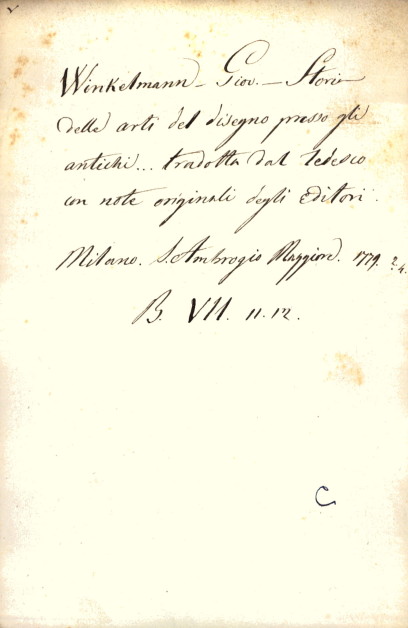 Winkelmann - Giov. - Storia
delle arti del disegno presso gli
antichi... tradotta dal tedesco
con note originali degli Editori.
Milano. S. Ambrogio Maggiore. 1779. 2. 4.
B. VII. 11. 12.
C